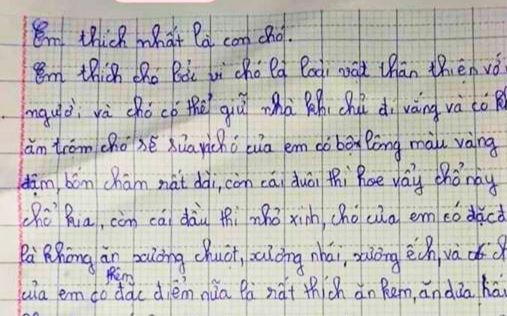 Em thích nhất là con chó.
Em thích chó bởi vì chó là loài vật thân thiện vớ
người và chó có thể giữ nhà khi chủ đi vắng và có k
ăn trộm chó sẽ sủa, chó của em có bộ lông màu vàng
đậm, bốn chân rất dài, còn cái đuôi thì hoe vẩy chỗ này
chỗ kia, còn cái đầu thì nhỏ xinh, chó của em có đặc đ
là không ăn xương chuột, xương nhái, xương ếch, và ch
của em có thêm đặc điểm nữa là rất thích ăn kem, ăn dưa hấu